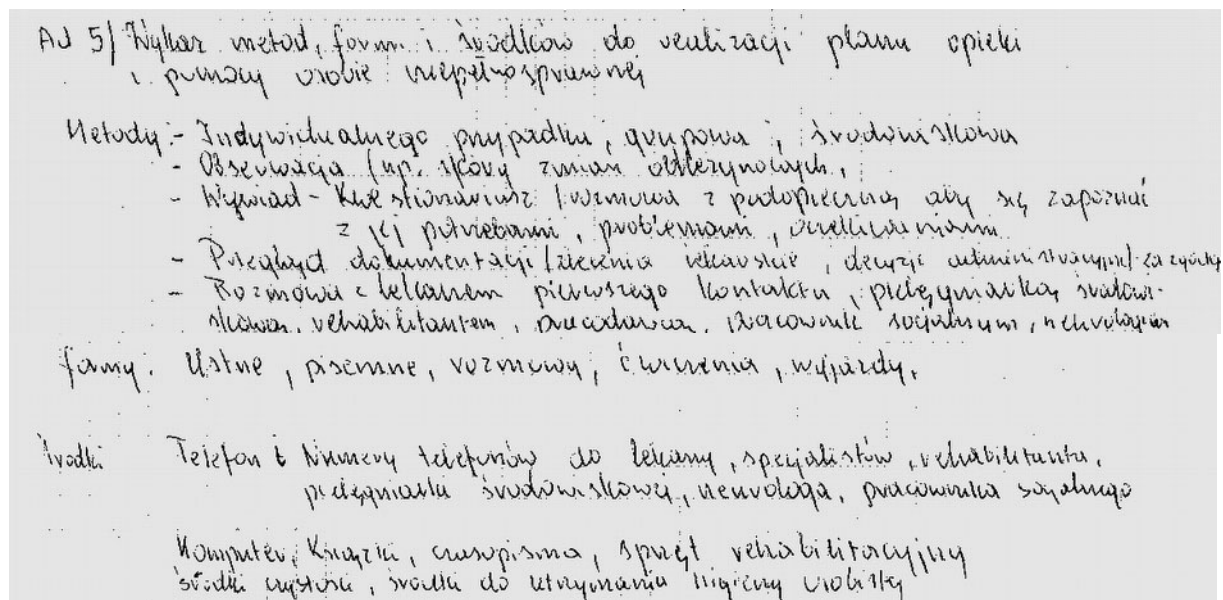 Ad 5/ Wykaz metod, form i środków do realizacji planu opieki
i pomocy osobie niepełnosprawnej
Metody:- Indywidualnego przypadku, grupowa, środowiskowa
- Obserwacja (np. skóry zmian odleżynowych,
- Wywiad - Kwestionariusz /rozmowa z podopieczną aby się zapoznać
z jej potrzebami, problemami, oczekiwaniami
- Przegląd dokumentacji /zlecenia lekarskie, decyzje administracyjne/- za zgodą
- Rozmowa z lekarzem pierwszego kontaktu, pielęgniarką środowi-
skową, rehabilitantem, pracodawcą, pracownik socjalnym, neurologiem
formy. Ustne, pisemne, rozmowy, ćwiczenia, wyjazdy,
środki Telefon i Numery telefonów do lekarzy, specjalistów, rehabilitanta,
pielęgniarki środowiskowej, neurologa, pracownika socjalnego
Komputer, Książki, czasopisma, sprzęt rehabilitacyjny
środki czystości, środki do utrzymania higieny osobistej